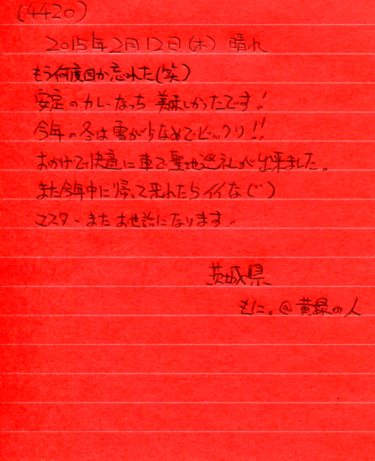 (4420)
2015年2月12日(木) 晴れ
もう何度目か忘れた(笑)
安定のカレーなっち 美味しかったです!
今年の冬は雪が少なめでビックリ!!
おかげで快適に車で聖地巡礼が出来ました。
また今年中に帰って来れたらイイなぐ)
マスターまたお世話になります。
茨城県
もに。@黄緑の人